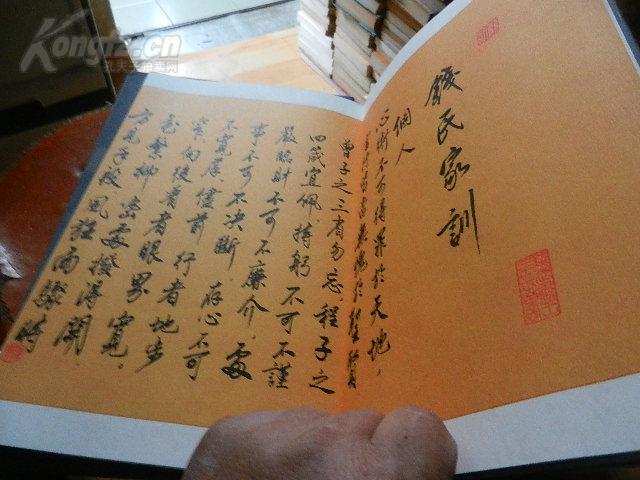 錢氏家訓
個人
心術不可得罪於天地，
言行皆當無愧於聖賢
曾子之三省勿忘，程子之
四箴宜佩持躬不可不謹
嚴臨財不可不廉介，處
事不可不决斷，存心不可
不寬厚儘前行者地步
窄向後看者眼界寬，
花繁柳密處撥得開，
方見手段風狂雨驟時
Kongfz.cn